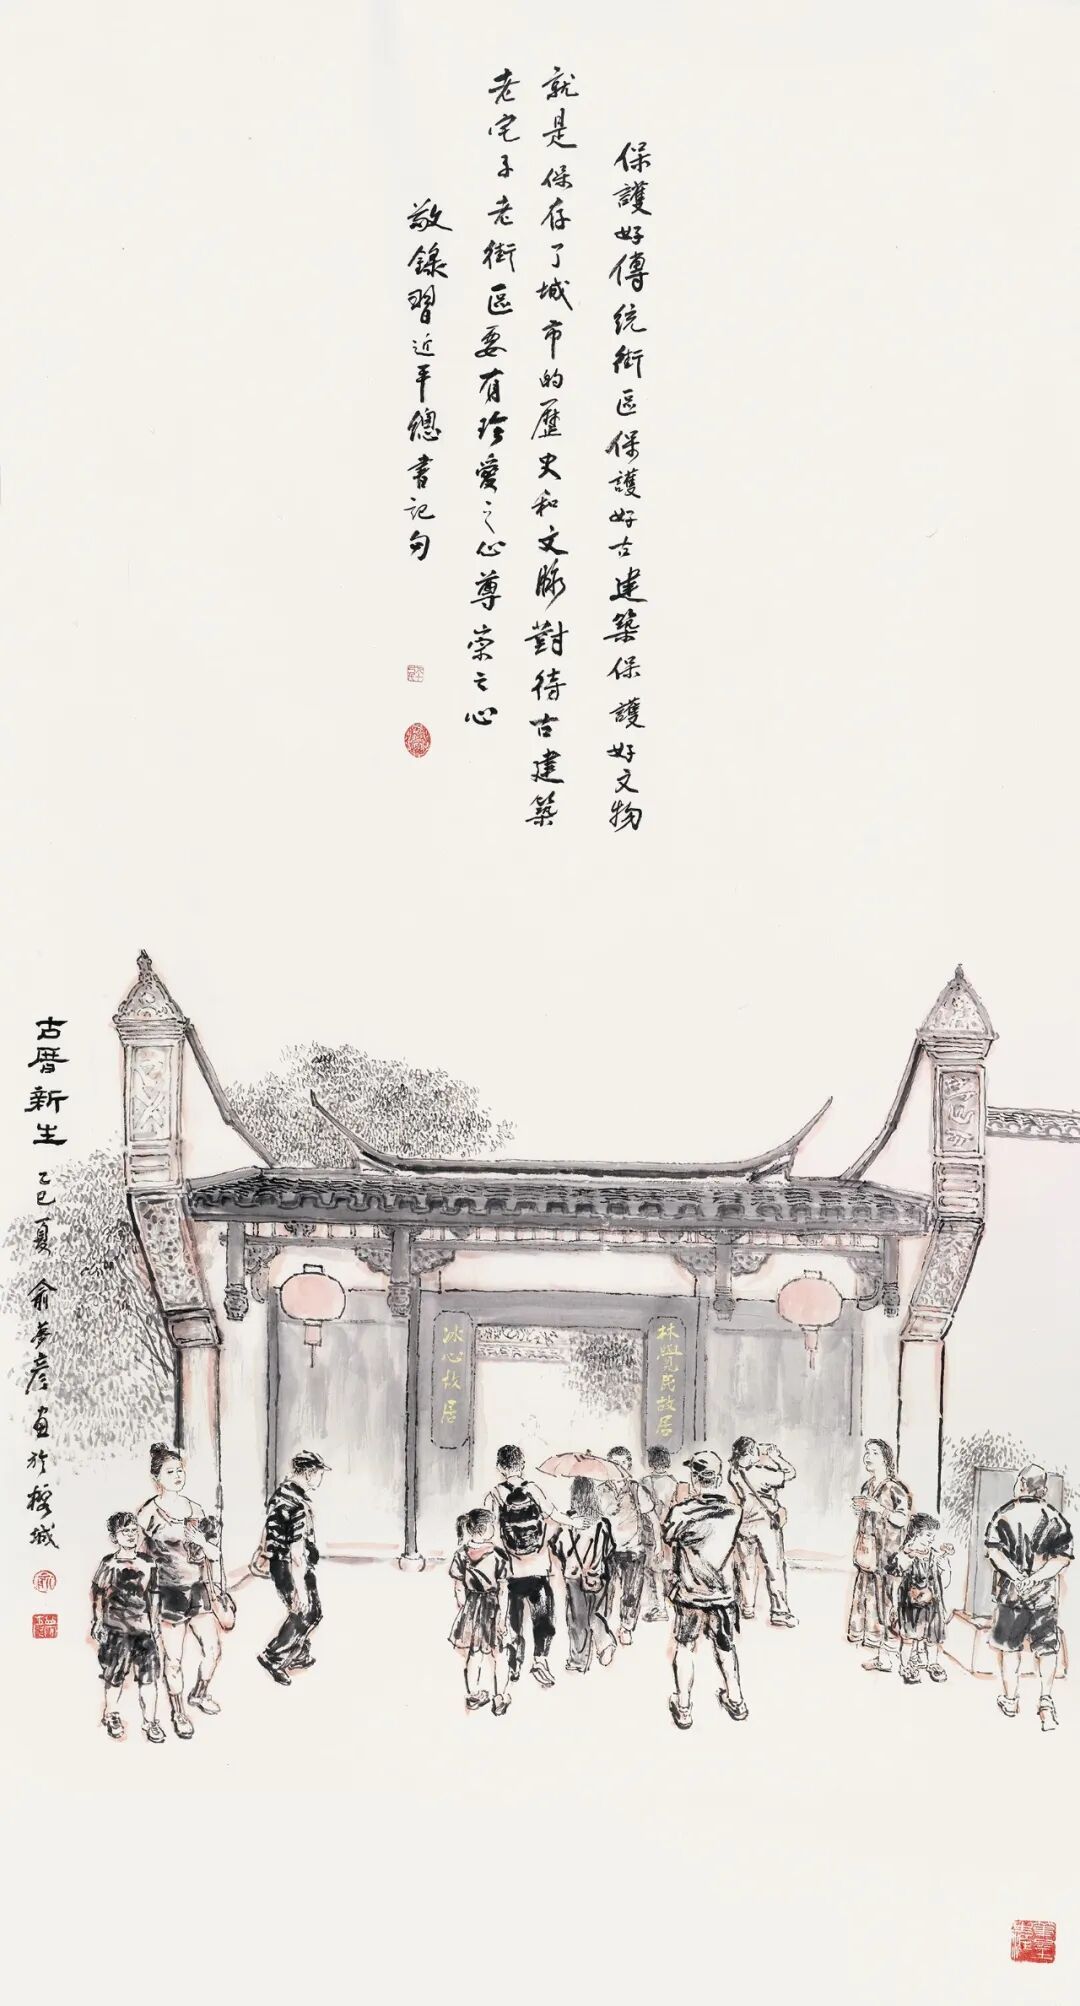 保護好傳統街區保護好古建築保護好文物
就是保存了城市的歷史和文脉對待古建築
老宅子老街區要有珍愛之心尊崇之心
敬錄習近平總書記句
古厝新生
乙巳夏俞夢彥畫於榕城
林覺民故居
冰心故居